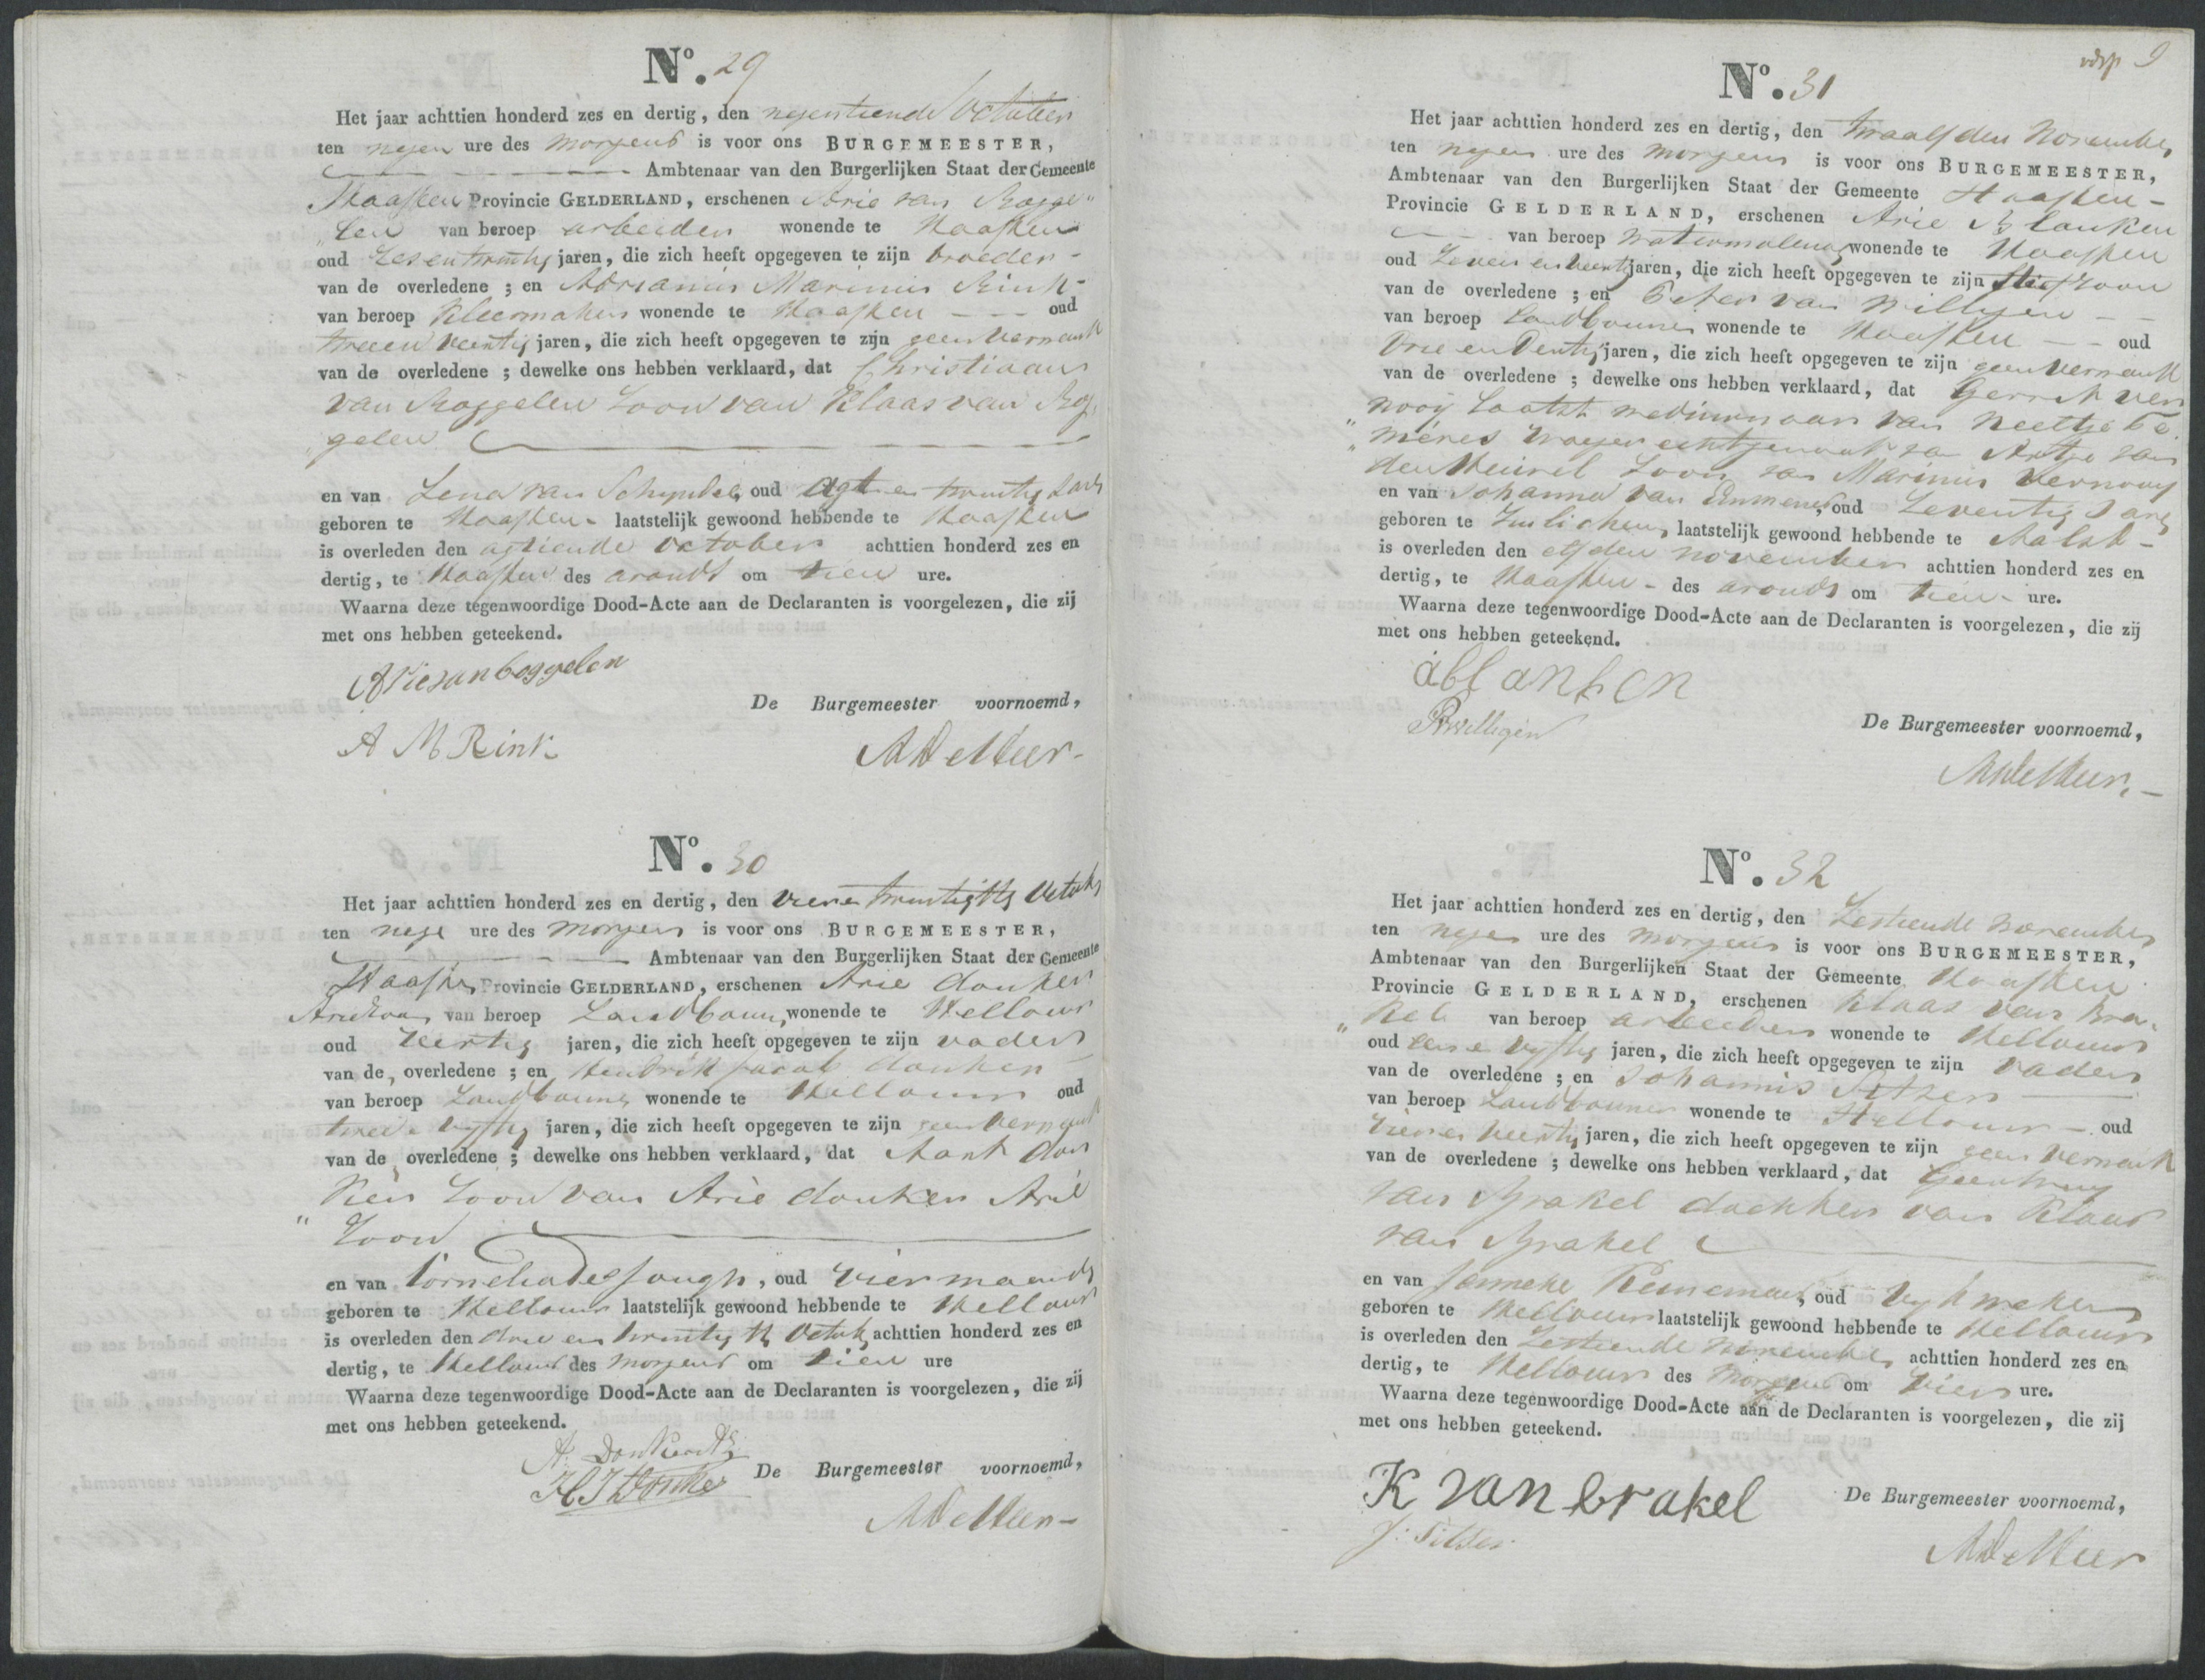 N.º 29
Het jaar achttien honderd zes en dertig, den negentiende October
ten negen ure des morgens is voor ons BURGEMEESTER,
Ambtenaar van den Burgerlijken Staat der Gemeente
Haaften Provincie GELDERLAND, erschenen Arie van Rogge"
"len van beroep arbeider wonende te Haaften
oud zesentwintig jaren, die zich heeft opgegeven te zijn broeder -
van de overledene ; en Adrianus Marinus Rink -
van beroep Kleermaker wonende te Haaften - - oud
tweeen veertig jaren, die zich heeft opgegeven te zijn geen vermant
van de overledene ; dewelke ons hebben verklaard, dat Christiaan
van Roggelen zoon van Klaas van Rog"
"gelen
en van Lena van Schyndel, oud agt en twintig Jaren
geboren te Haaften - laatstelijk gewoond hebbende te Haaften
is overleden den agtiende October achttien honderd zes en
dertig, te Haaften des avonds om tien ure.
Waarna deze tegenwoordige Dood-Acte aan de Declaranten is voorgelezen, die zij
met ons hebben geteekend.
A M Rink
De Burgemeester voornoemd,
N.º 30
Het jaar achttien honderd zes en dertig, den viere twintigste October
ten nege ure des morgens is voor ons BURGEMEESTER,
Ambtenaar van den Burgerlijken Staat der Gemeente
Haaften Provincie GELDERLAND, erschenen Arie donker
Ariezoon van beroep Landbouwer wonende te Hellouw
oud veertig jaren, die zich heeft opgegeven te zijn vader
van de overledene ; en Hendrik Jacob donker
van beroep Landbouwer wonende te Hellouw oud
twee vyftig jaren, die zich heeft opgegeven te zijn geen vermant
van de overledene ; dewelke ons hebben verklaard, dat Aart don
ker zoon van Arie donker Arie
" zoon
en van Cornelia de Jongh, oud vier maands
geboren te Hellouw laatstelijk gewoond hebbende te Hellouw
is overleden den drie en twintigste October achttien honderd zes en
dertig, te Hellouw des morgens om tien ure
Waarna deze tegenwoordige Dood-Acte aan de Declaranten is voorgelezen, die zij
met ons hebben geteekend.
A. Donker Az
H J Donker
De Burgemeester voornoemd,
9
N.º 31
Het jaar achttien honderd zes en dertig, den twaalfden November
ten negen ure des morgens is voor ons BURGEMEESTER,
Ambtenaar van den Burgerlijken Staat der Gemeente Haaften -
Provincie GELDERLAND, erschenen Arie Blanken
van beroep watermolenaar wonende te Haaften
oud zeven en veertig jaren, die zich heeft opgegeven te zijn stiefzoon
van de overledene ; en Peter van Willigen - -
van beroep Landbouwer wonende te Haaften - - oud
drie en dertig jaren, die zich heeft opgegeven te zijn geen vermant
van de overledene ; dewelke ons hebben verklaard, dat Gerrit ver
nooy laatst weduwnaar van Neeltje
vroeger echtgenoot van Antje van
den Heuvel zoon van Marinus Vernooy
en van Johanna van Emmenes, oud zeventig Jaren
geboren te Zuilichem, laatstelijk gewoond hebbende te Aalst -
is overleden den elfden november achttien honderd zes en
dertig, te Haaften - des avonds om tien ure.
Waarna deze tegenwoordige Dood-Acte aan de Declaranten is voorgelezen, die zij
met ons hebben geteekend.
a blanken
PvWilligen
De Burgemeester voornoemd,
N.º 32
Het jaar achttien honderd zes en dertig, den Zestiende November
ten negen ure des morgens is voor ons BURGEMEESTER,
Ambtenaar van den Burgerlijken Staat der Gemeente Haaften
Provincie GELDERLAND, erschenen Klaas van Bra"
"kel van beroep arbeider wonende te Hellouw
oud eene vyftig jaren, die zich heeft opgegeven te zijn vader
van de overledene ; en Johannis
van beroep Landbouwer wonende te Hellouw - oud
viere veertig jaren, die zich heeft opgegeven te zijn geen vermant
van de overledene ; dewelke ons hebben verklaard, dat Geertruy
van Brakel dochter van Klaas
van Brakel
en van Janneke oud vyf weken
geboren te Hellouw laatstelijk gewoond hebbende te Hellouw
is overleden den Zestiende November achttien honderd zes en
dertig, te Hellouw des morgens om vier ure.
Waarna deze tegenwoordige Dood-Acte aan de Declaranten is voorgelezen, die zij
met ons hebben geteekend.
K van brakel
De Burgemeester voornoemd,